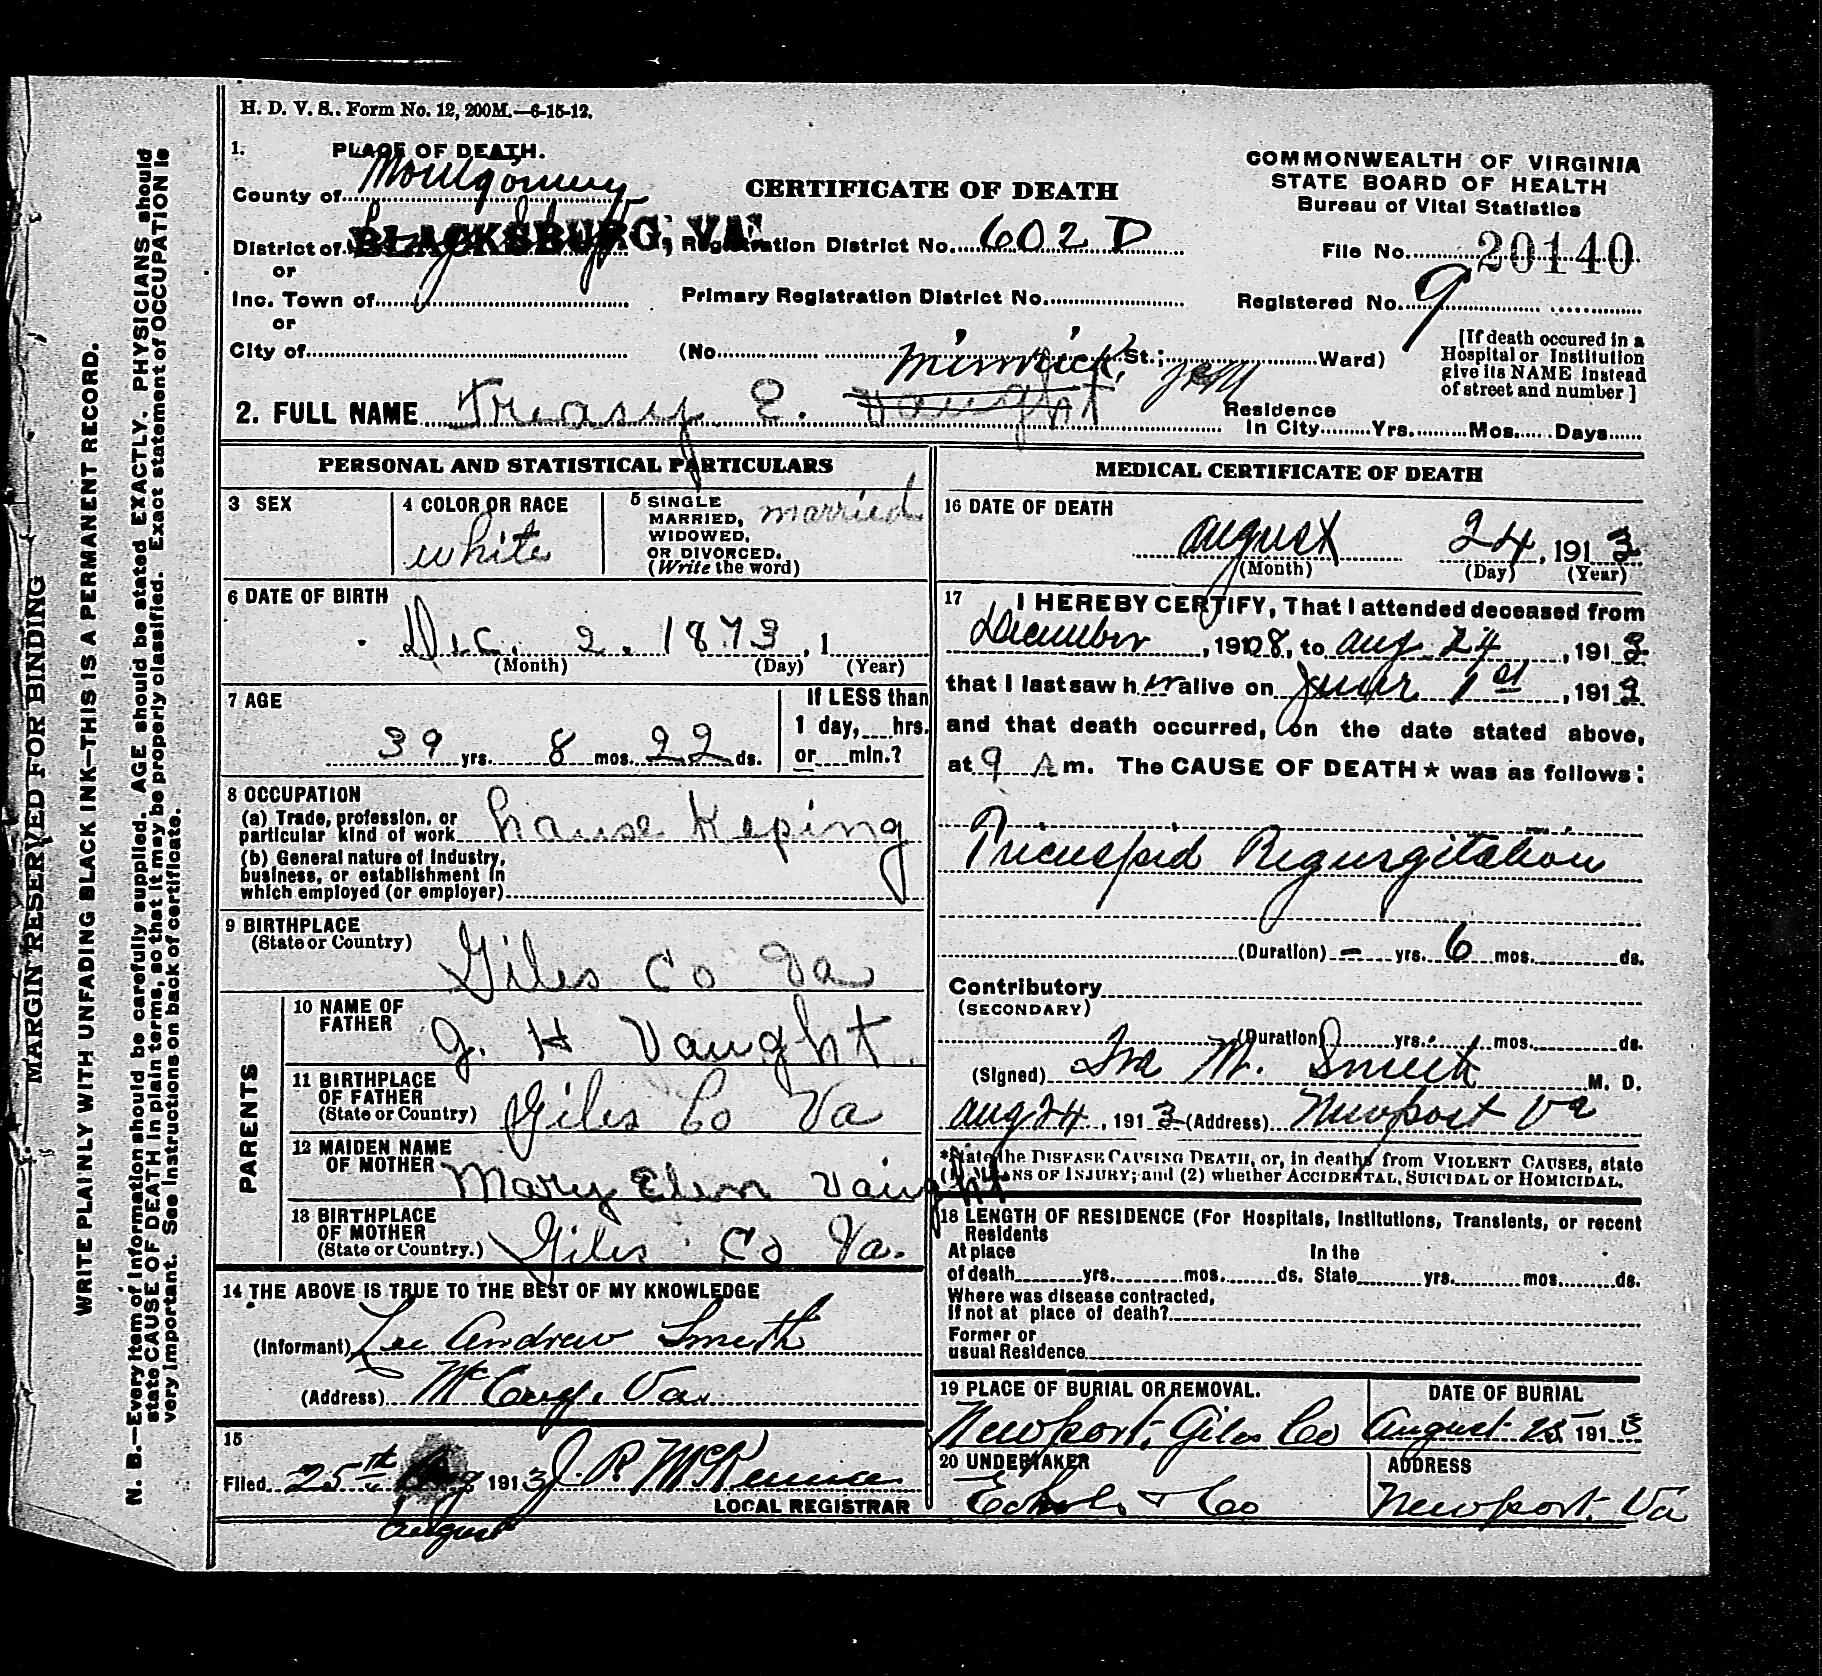 H. D. V. S.. Form No. 12, 200M.—6-15-12.
1. PLACE OF DEATH.
County of Montgomery
CERTIFICATE OF DEATH
COMMONWEALTH OF VIRGINIA
STATE BOARD OF HEALTH
Bureau of Vital Statistics
District of BLACKSBURG, VA. Registration District No. 602 D
File No. 20140
or
Inc. Town of
Primary Registration District No.
Registered No. 9
or
City of
(No. St.; Ward)
[If death occured in a
Hospital or Institution
give its NAME instead
of street and number]
Minnick
2. FULL NAME Treasy E. Vaught
Residence
In City Yrs. Mos. Days
PERSONAL AND STATISTICAL PARTICULARS
3 SEX
4 COLOR OR RACE
white
5 SINGLE
MARRIED,
WIDOWED,
OR DIVORCED.
(Write the word)
married
6 DATE OF BIRTH
Dec. 2. 1873, 1
(Month) (Day) (Year)
7 AGE
39 yrs. 8 mos. 22 ds.
If LESS than
1 day, hrs.
or min.?
8 OCCUPATION
(a) Trade, profession, or
particular kind of work house Keping
(b) General nature of Industry,
business, or establishment in
which employed (or employer)
9 BIRTHPLACE
(State or Country)
Giles Co Va
PARENTS
10 NAME OF
FATHER
J. H Vaught
11 BIRTHPLACE
OF FATHER
(State or Country)
Giles Co Va
12 MAIDEN NAME
OF MOTHER
Mary Elen Vaught
13 BIRTHPLACE
OF MOTHER
(State or Country.)
Giles Co Va.
14 THE ABOVE IS TRUE TO THE BEST OF MY KNOWLEDGE
(Informant) Lee Andrew Smith
(Address) McCoy. Va.
15
Filed 25th Aug 1913 J. P. McKennie
LOCAL REGISTRAR
August
MEDICAL CERTIFICATE OF DEATH
16 DATE OF DEATH
August 24, 1913
(Month) (Day) (Year)
17 I HEREBY CERTIFY, That I attended deceased from
December, 1908, to Aug. 24, 1913
that I last saw her alive on June 1st, 1913
and that death occurred, on the date stated above,
at 9 A m. The CAUSE OF DEATH★ was as follows:
Tricuspid Regurgitation
(Duration) — yrs. 6 mos. ds.
Contributory
(SECONDARY)
(Duration) yrs. mos. ds.
(Signed) Ira M. Smith M. D.
Aug 24, 1913 (Address) Newport Va
*State the DISEASE CAUSING DEATH, or, in deaths from VIOLENT CAUSES, state
(1) MEANS OF INJURY; and (2) whether ACCIDENTAL, SUICIDAL or HOMICIDAL.
18 LENGTH OF RESIDENCE (For Hospitals, Institutions, Transients, or recent
Residents
At place In the
of death yrs. mos. ds. State yrs. mos. ds.
Where was disease contracted,
If not at place of death?
Former or
usual Residence
19 PLACE OF BURIAL OR REMOVAL.
Newport, Giles Co
DATE OF BURIAL
August 25 1913
20 UNDERTAKER
Echols & Co
ADDRESS
Newport. Va
MARGIN RESERVED FOR BINDING
WRITE PLAINLY WITH UNFADING BLACK INK—THIS IS A PERMANENT RECORD.
N. B.—Every item of Information should be carefully supplied. AGE should be stated EXACTLY. PHYSICIANS should
state CAUSE OF DEATH in plain terms, so that it may be properly classified. Exact statement of OCCUPATION is
very important. See instructions on back of certificate.